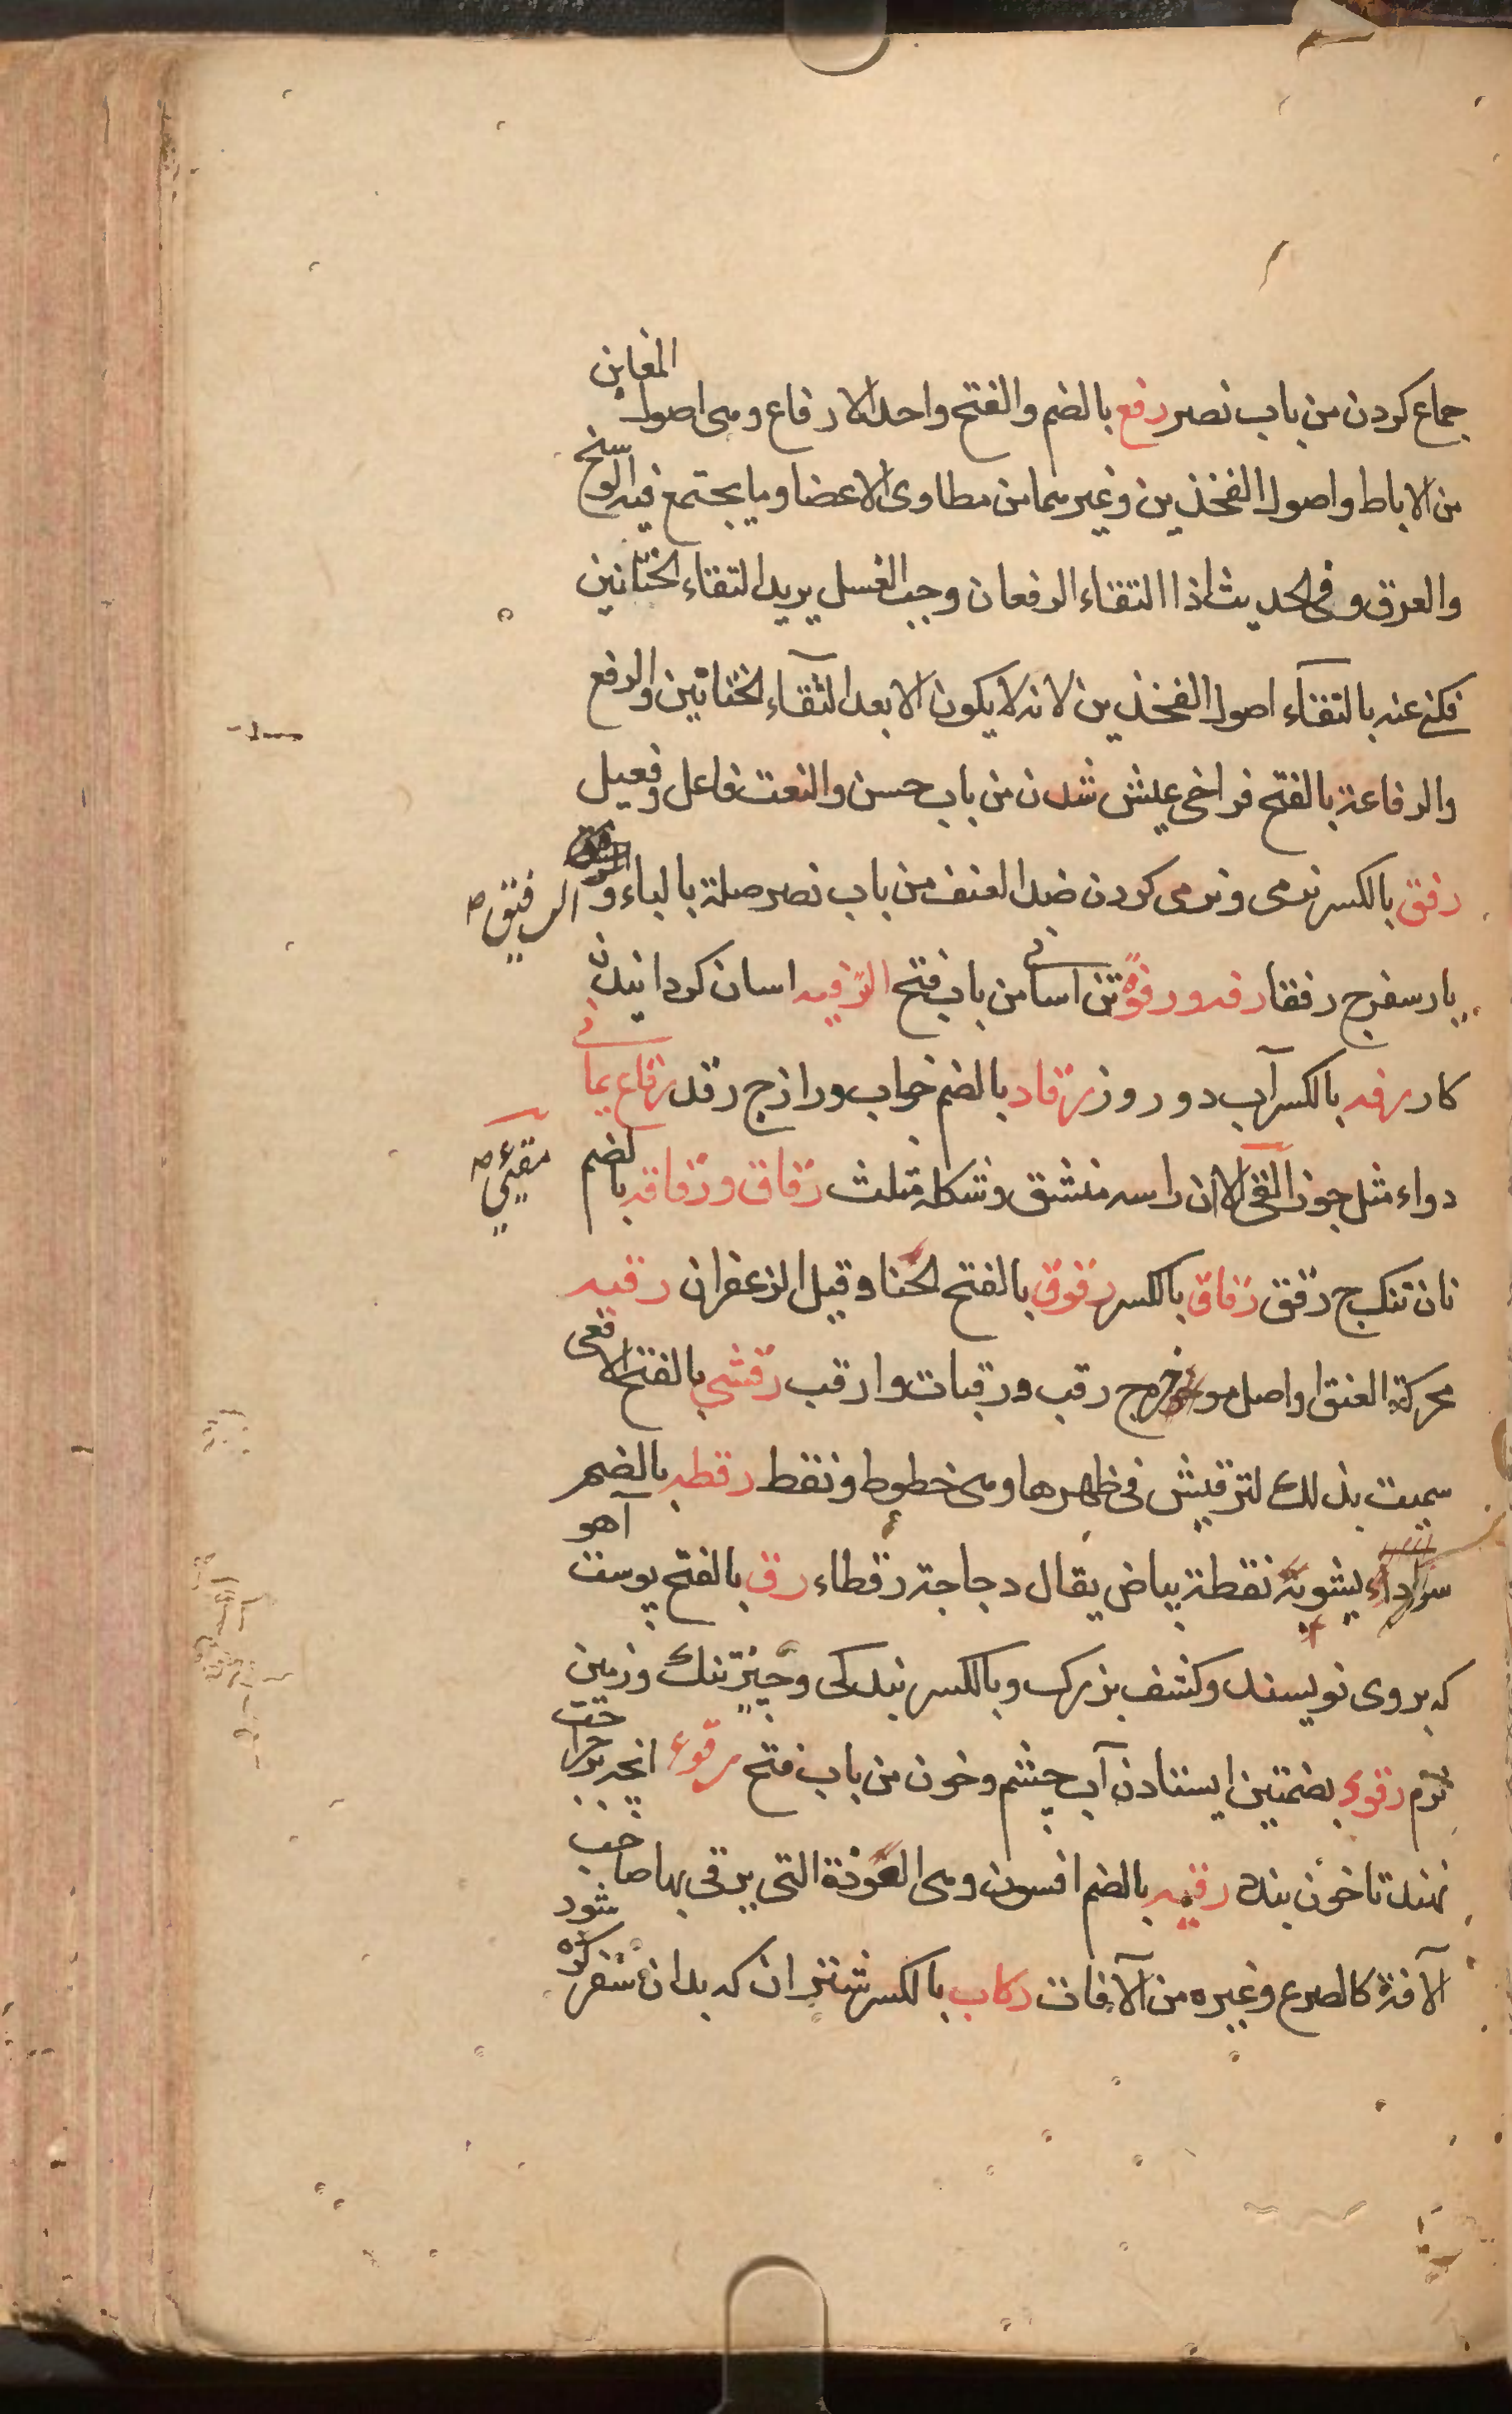 جماع کردن من باب نصر رفع بالضم والفتح واحد الارفاع وهی اصول المغابن
من الاباط واصول الفخذین وغیرهما من مطاوی الاعضا وما یجتمع فیه الوسخ
والعرق وفی الحدیث اذا التقاء الرفعان وجب الغسل یرید التقاء الختانین
فکنی عنه بالتقاء اصول الفخذین لانه لا یکون الا بعد التقاء الختانین والرفع
والرفاعة بالفتح فراخی عیش شدن من باب حسن والنعت فاعل وفعیل
رفق بالکسر نرمی ونرمی کردن ضد العنف من باب نصر صلة بالباء و الرفیق صح
یار سفر ج رفقا رفه ورفوه تن اسانی من باب فتح الترفیه اسان کردانیدن
کار رفه بالکسر آب دو روز رقاد بالضم خواب وراز ج رقد رقاع یمانی
دواء مثل جوز القی الا ان راسه منشق وشکله مثلث رقاق ورقاقه بالضم
مقیئ صح
نان تنک ج رقق رقاق بالکسر رقوق بالفتح الحنا وقیل الزعفران رقبه
محرکة العنق واصل موخره ج رقب ورقبات وارقب رقشی بالفتح الافعی
سمیت بذلک لترقیش فی ظهرها وهی خطوط ونقط رقطه بالضم
سواد یشوبه نقطة بیاض یقال دجاجة رقطاء رق بالفتح پوست آهو
که بروی نویسند وکشف بزرک وبالکسر بندکی وچیز تنک وزمین
نرم رقوء بضمتین ایستادن آب چشم وخون من باب فتح رقوء انچه بر جراحت
نهند تا خون بندد رقیه بالضم افسون وهی العوذة التی یرقی بها صاحب
الآفة کالصرع وغیره من الآفات رکاب بالکسر شتران که بدان سفر کرده شود